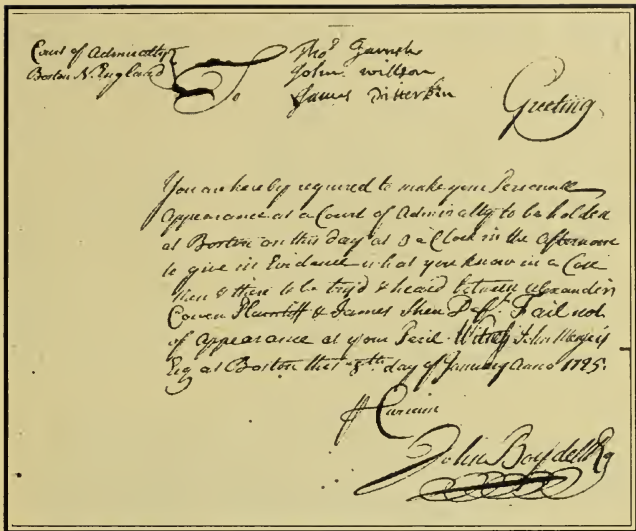 Court of Admiralty
Boston N. England
To
Tho.s Garnsh
John Willson
James Pitterkin
Greeting
You are hereby required to make your Personall
Appearance at a Court of Admiralty to be holden
at Boston on this day at 3 a Clock in the afternoone
to give in Evidence what you know in a Case
then & there to be try'd & heard between Alexander
Cowen Plaintiff & James Shen Deft. Fail not
of Appearance at your Peril. Witness John Menzeis
Esq at Boston this 5th day of January Anno 1725.
Curiam
John Boydell Rg